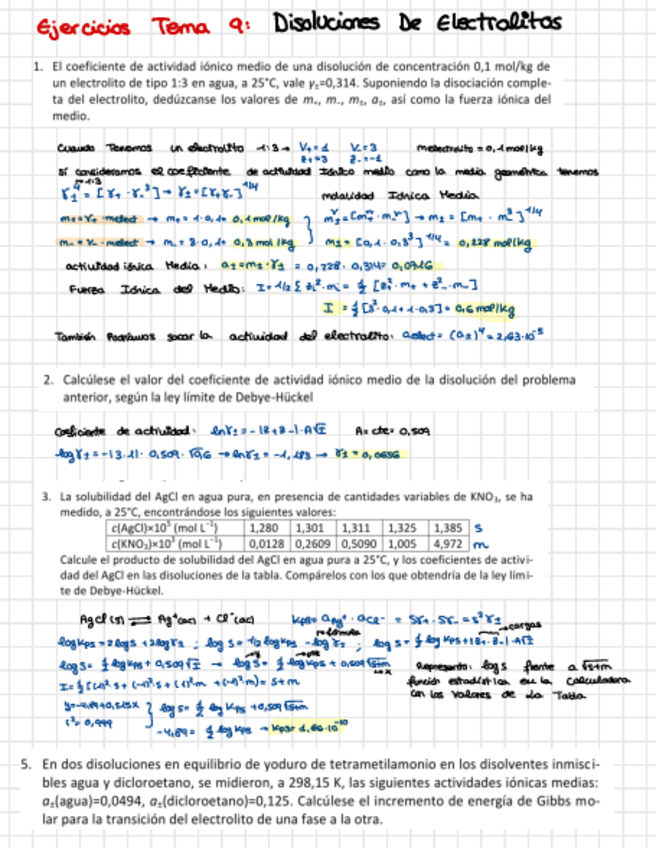 Ejercicios Tema 9: Disoluciones De Electrolitos
1. El coeficiente de actividad iónico medio de una disolución de concentración 0,1 mol/kg de
un electrolito de tipo 1:3 en agua, a 25°C, vale γ±=0,314. Suponiendo la disociación comple-
ta del electrolito, dedúzcanse los valores de m₊, m₋, m±, a±, así como la fuerza iónica del
medio.
Cuando Tenemos un electrolito 1:3 → V+=1 V-=3 melectrolito = 0,1 mol/kg
z+=3 z-=-1
si consideramos el coeficiente de actividad Iónico medio como la media geométrica tenemos
γ±⁴ = [γ+·γ-³] → γ± = [γ+γ-³]^1/4 molalidad Iónica Media
m+=V+·melect → m+ = 1·0,1 = 0,1 mol/kg m±^V = [m+^V+·m-^V-] → m± = [m+·m-³]^1/4
m-=V-·melect → m- = 3·0,1 = 0,3 mol/kg m± = [0,1·0,3³]^1/4 = 0,228 mol/kg
actividad iónica Media: a± = m±·γ± = 0,228·0,314 = 0,0716
Fuerza Iónica del Medio: I = 1/2 Σ zi²·mi = 1/2 [z+²·m+ + z-²·m-]
I = 1/2 [3²·0,1+1·0,3] = 0,6 mol/kg
También Podríamos sacar la actividad del electrolito: aelect = (a±)⁴ = 2,63·10⁻⁵
2. Calcúlese el valor del coeficiente de actividad iónico medio de la disolución del problema
anterior, según la ley límite de Debye-Hückel
Coeficiente de actividad: lnγ± = -|z+z-|·A√I A = cte = 0,509
logγ± = -|3·1|·0,509·√0,6 → lnγ± = -1,183 → γ± = 0,0656
3. La solubilidad del AgCl en agua pura, en presencia de cantidades variables de KNO₃, se ha
medido, a 25°C, encontrándose los siguientes valores:
c(AgCl)×10⁵ (mol L⁻¹) 1,280 1,301 1,311 1,325 1,385 s
c(KNO₃)×10³ (mol L⁻¹) 0,0128 0,2609 0,5090 1,005 4,972 m
Calcule el producto de solubilidad del AgCl en agua pura a 25°C, y los coeficientes de activi-
dad del AgCl en las disoluciones de la tabla. Compárelos con los que obtendría de la ley lími-
te de Debye-Hückel.
AgCl (s) ⇌ Ag⁺(ac) + Cl⁻(ac) Kps = aAg⁺·aCl⁻ = sγ+·sγ- = s²γ±²
cargas
log Kps = 2 log s + 2 log γ± ; log s = 1/2 log Kps - log γ± ; log s = 1/2 log Kps + |z+·z-|·A√I
log s = 1/2 log Kps + 0,509√I → log s = 1/2 log Kps + 0,509 √s+m Represento: log s frente a √s+m
I = 1/2 [(1)²·s + (-1)²·s + (1)²·m + (-1)²·m] = s+m función estadística en la calculadora
con los valores de la Tabla.
y = -4,89+0,515x log s = 1/2 log Kps + 0,509 √s+m
r² = 0,999 -4,89 = 1/2 log Kps → Kps = 1,66·10⁻¹⁰
5. En dos disoluciones en equilibrio de yoduro de tetrametilamonio en los disolventes inmisci-
bles agua y dicloroetano, se midieron, a 298,15 K, las siguientes actividades iónicas medias:
a±(agua)=0,0494, a±(dicloroetano)=0,125. Calcúlese el incremento de energía de Gibbs mo-
lar para la transición del electrolito de una fase a la otra.